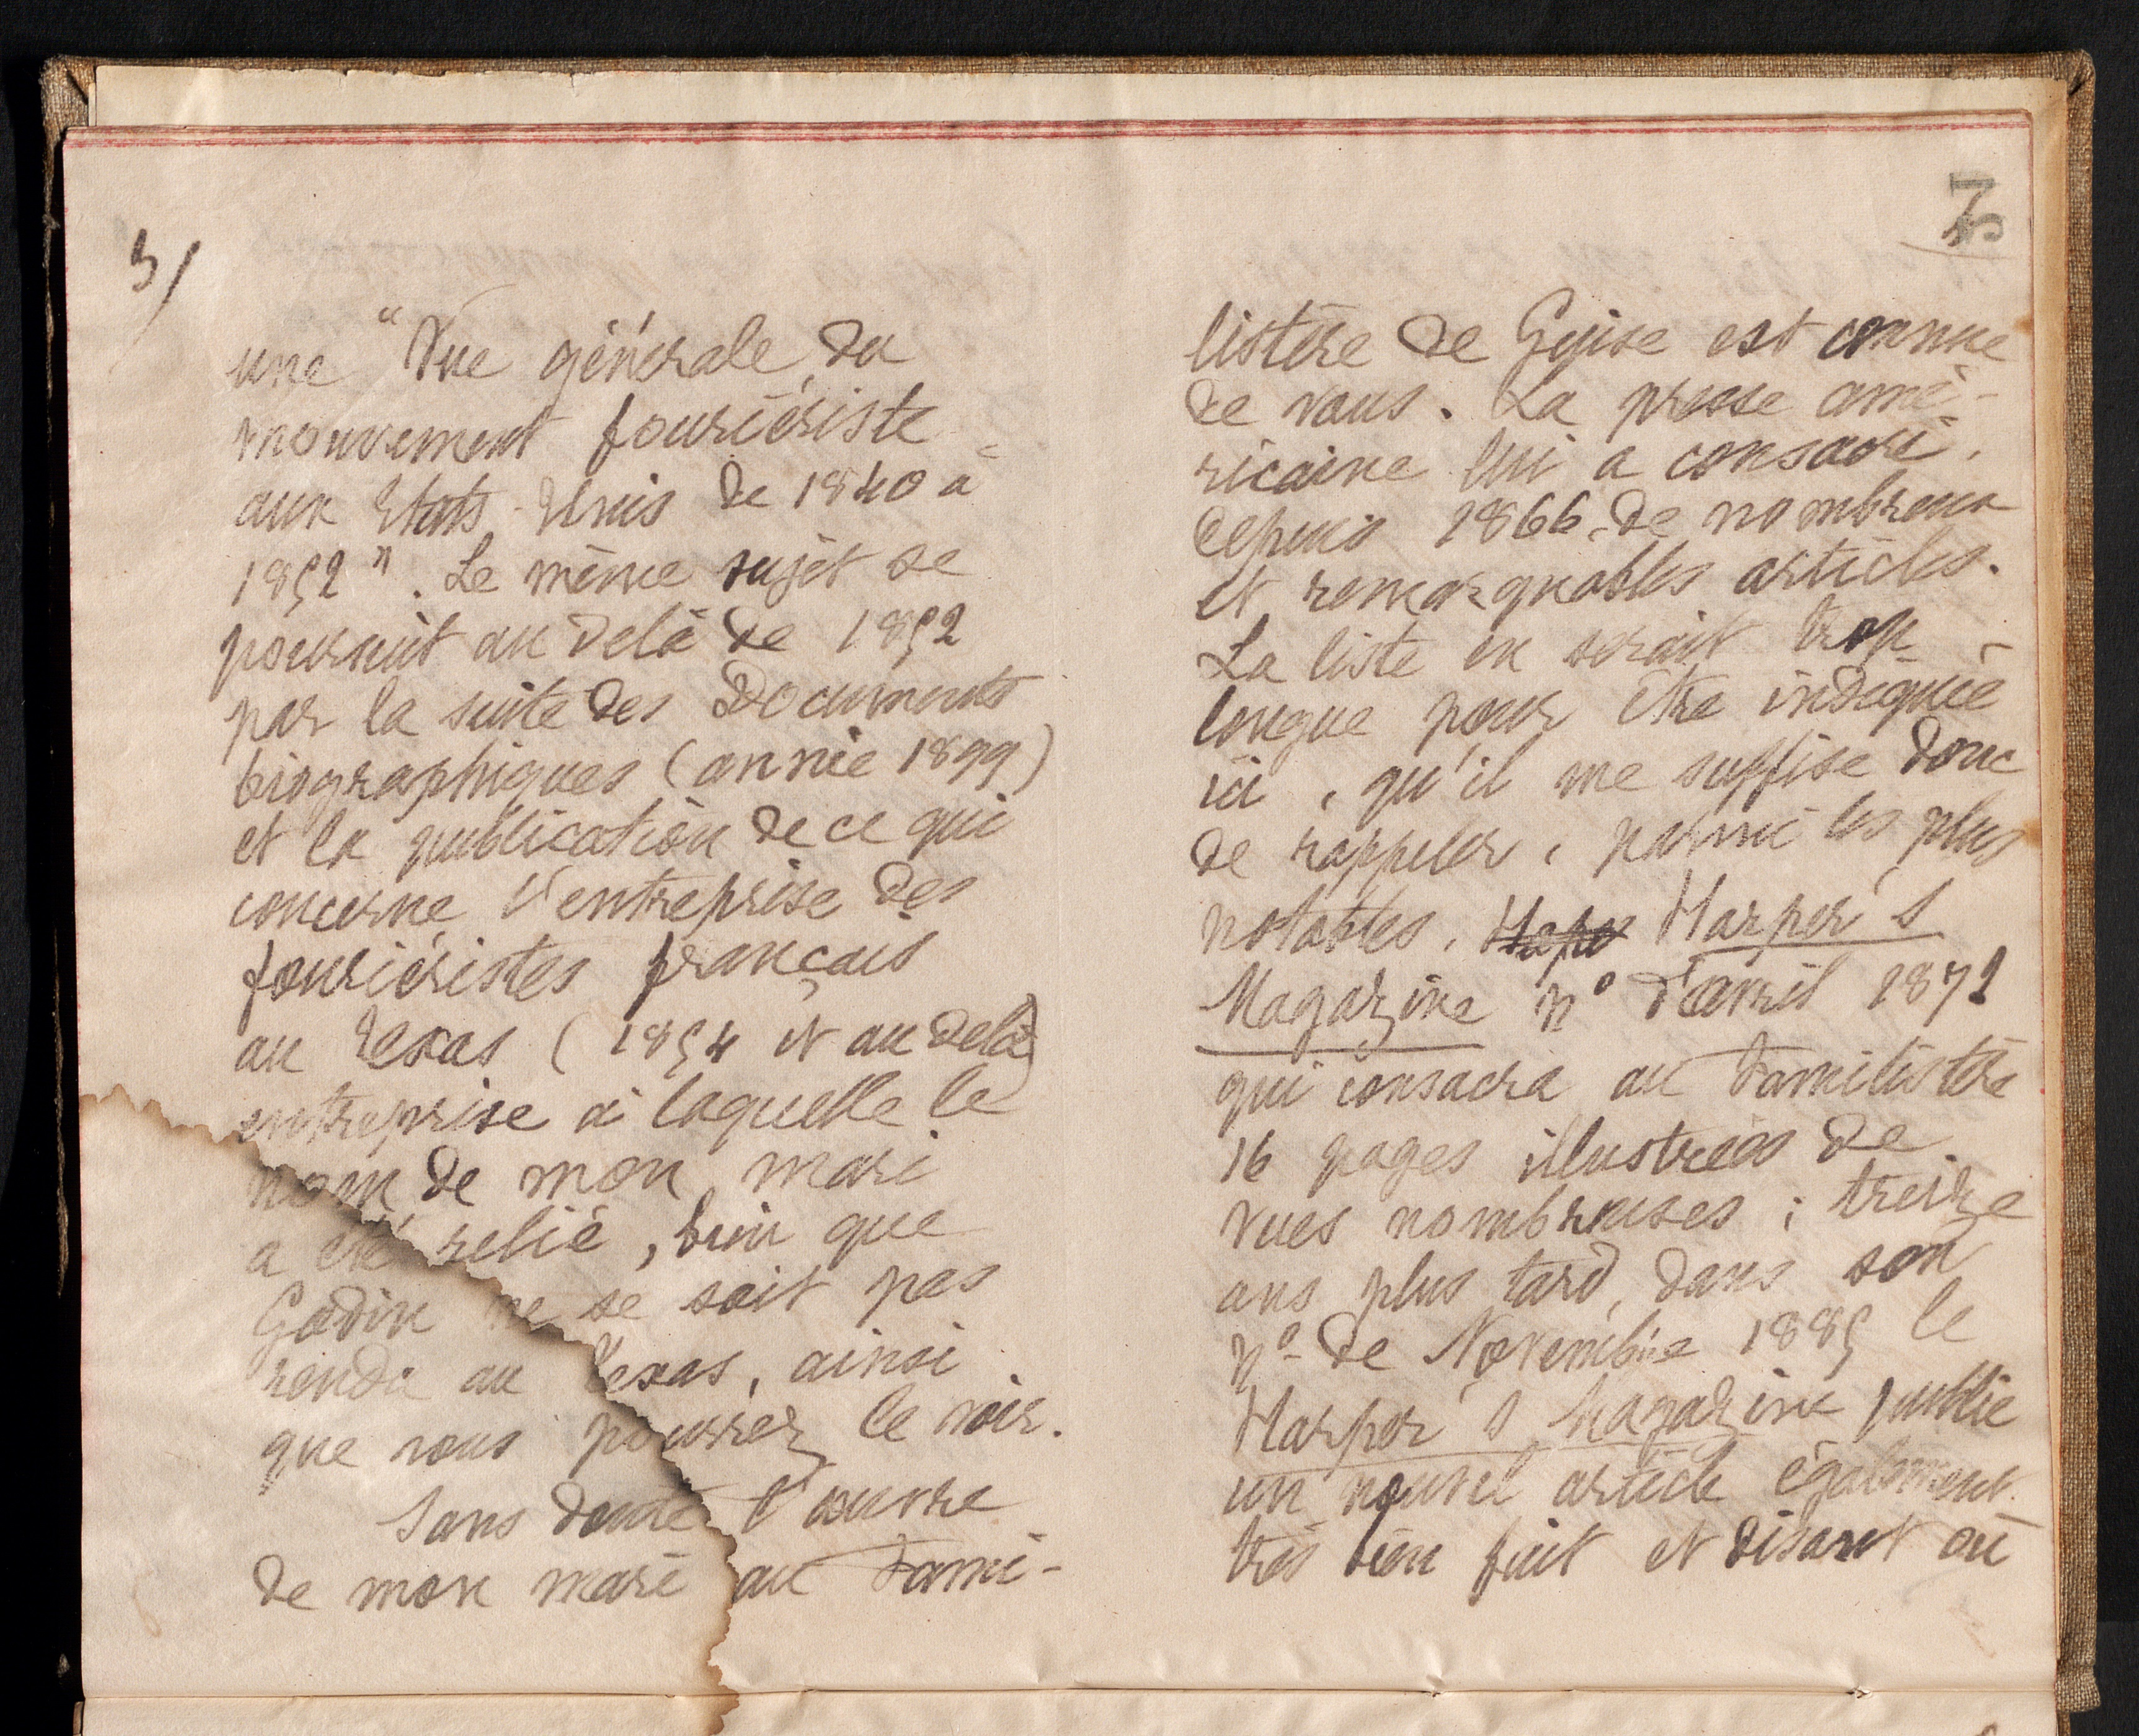 3/
une "Vue générale du
mouvement fouriériste
aux Etats-Unis de 1840 à
1852". Le même sujet se
poursuit au delà de 1852
par la suite des Documents
biographiques (année 1899)
et la publication de ce qui
concerne l'entreprise des
fouriéristes français
au Texas (1854 et au delà)
entreprise à laquelle le
nom de mon mari
a été relié, bien que
Godin ne se soit pas
rendu au Texas, ainsi
que vous pourrez le voir.
Sans doute l'œuvre
de mon mari au Fami-
listère de Guise est connue
de vous. La presse amé-
ricaine lui a consacré,
depuis 1866, de nombreux
et remarquables articles.
La liste en serait trop
longue pour être indiquée
ici, qu'il me suffise donc
de rappeler, parmi les plus
notables, Hapr Harper's
Magazine n° d'avril 1872
qui consacra au Familistère
16 pages illustrées de
vues nombreuses ; treize
ans plus tard, dans son
n° de Novembre 1885 le
Harper's Magazine publie
un nouvel article également
très bien fait et disant où